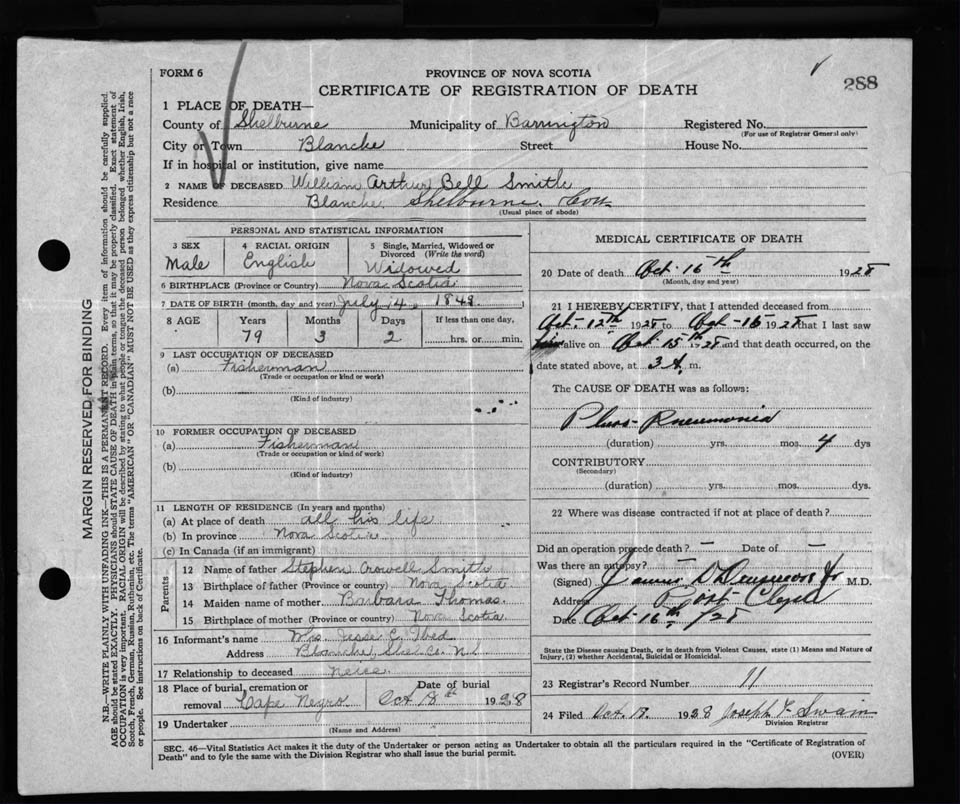 FORM 6
PROVINCE OF NOVA SCOTIA
CERTIFICATE OF REGISTRATION OF DEATH
288
1 PLACE OF DEATH—
County of Shelburne Municipality of Barrington Registered No.
(For use of Registrar General only)
City or Town Blanche Street House No.
If in hospital or institution, give name
2 NAME OF DECEASED William Arthur Bell Smith
Residence Blanche, Shelburne. Con.
(Usual place of abode)
PERSONAL AND STATISTICAL INFORMATION
3 SEX 4 RACIAL ORIGIN 5 Single, Married, Widowed or Divorced (Write the word)
Male English Widowed
6 BIRTHPLACE (Province or Country) Nova Scotia
7 DATE OF BIRTH (month, day and year) July 14, 1849.
8 AGE Years Months Days If less than one day,
79 3 2 hrs. or min.
9 LAST OCCUPATION OF DECEASED
(a) Fisherman
(Trade or occupation or kind or work)
(b)
(Kind of industry)
10 FORMER OCCUPATION OF DECEASED
(a) Fisherman
(Trade or occupation or kind of work)
(b)
(Kind of industry)
11 LENGTH OF RESIDENCE (In years and months)
(a) At place of death all his life
(b) In province Nova Scotia
(c) In Canada (if an immigrant)
Parents
12 Name of father Stephen Crowell Smith
13 Birthplace of father (Province or country) Nova Scotia
14 Maiden name of mother Barbara Thomas.
15 Birthplace of mother (Province or country) Nova Scotia.
16 Informant's name Mrs. Jesse C.
Address Blanche, Shel. Co. N.S.
17 Relationship to deceased neice
18 Place of burial, cremation or removal Cape Negro Date of burial Oct 18th 1928
19 Undertaker
(Name and Address)
MEDICAL CERTIFICATE OF DEATH
20 Date of death Oct. 16th 1928
(Month, day and year)
21 I HEREBY CERTIFY, that I attended deceased from
Oct. 12th 1928 to Oct-15 1928 that I last saw
him alive on Oct 15th 1928 and that death occurred, on the
date stated above, at 3 A. m.
The CAUSE OF DEATH was as follows:
Pleuro-Pneumonia
(duration) yrs. mos. 4 dys
CONTRIBUTORY
(Secondary)
(duration) yrs. mos. dys.
22 Where was disease contracted if not at place of death?
Did an operation precede death? — Date of —
Was there an autopsy? —
(Signed) M.D.
Address Port Clyde
Date Oct 16th/28
State the Disease causing Death, or in death from Violent Causes, state (1) Means and Nature of
Injury, (2) whether Accidental, Suicidal or Homicidal.
23 Registrar's Record Number 11
24 Filed Oct. 18. 1928 Joseph F. Swain
Division Registrar
SEC. 46—Vital Statistics Act makes it the duty of the Undertaker or person acting as Undertaker to obtain all the particulars required in the "Certificate of Registration of
Death" and to fyle the same with the Division Registrar who shall issue the burial permit.
(OVER)
MARGIN RESERVED FOR BINDING
N.B.—WRITE PLAINLY WITH UNFADING INK—THIS IS A PERMANENT RECORD. Every item of information should be carefully supplied.
AGE should be stated EXACTLY. PHYSICIANS should STATE CAUSE OF DEATH in plain terms, so that it may be properly classified. Exact statement of
OCCUPATION is very important. RACIAL ORIGIN will be described by stating to what people or tongue the deceased person belonged whether English, Irish,
Scotch, French, German, Russian, Ruthenian, etc. The terms "AMERICAN" OR "CANADIAN" MUST NOT BE USED as they express citizenship but not a race
or people. See instructions on back of Certificate.